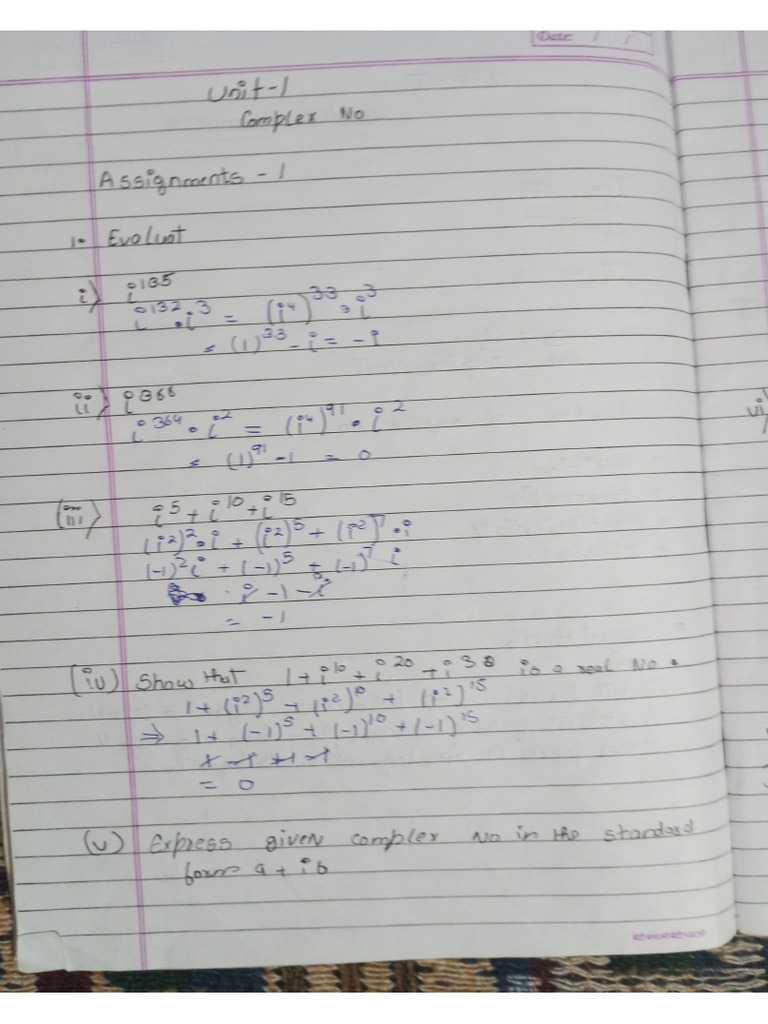 Date / /
Unit-1
Complex No
Assignments - 1
1. Evaluat
i) i¹³⁵
i¹³² · i³ = (i⁴)³³ · i³
= (1)³³ - i = -i
ii) i³⁶⁶
i³⁶⁴ · i² = (i⁴)⁹¹ · i²
= (1)⁹¹ - 1 = 0
(iii) i⁵ + i¹⁰ + i¹⁵
(i²)² · i + (i²)⁵ + (i²)⁷ · i
(-1)² i + (-1)⁵ + (-1)⁷ i
i - 1 - i
= -1
(iv) Show that 1 + i¹⁰ + i²⁰ + i³⁰ is a real No.
1 + (i²)⁵ + (i²)¹⁰ + (i²)¹⁵
⇒ 1 + (-1)⁵ + (-1)¹⁰ + (-1)¹⁵
1 - 1 + 1 - 1
= 0
(v) Express given complex No in the standard
form a + ib
vi)